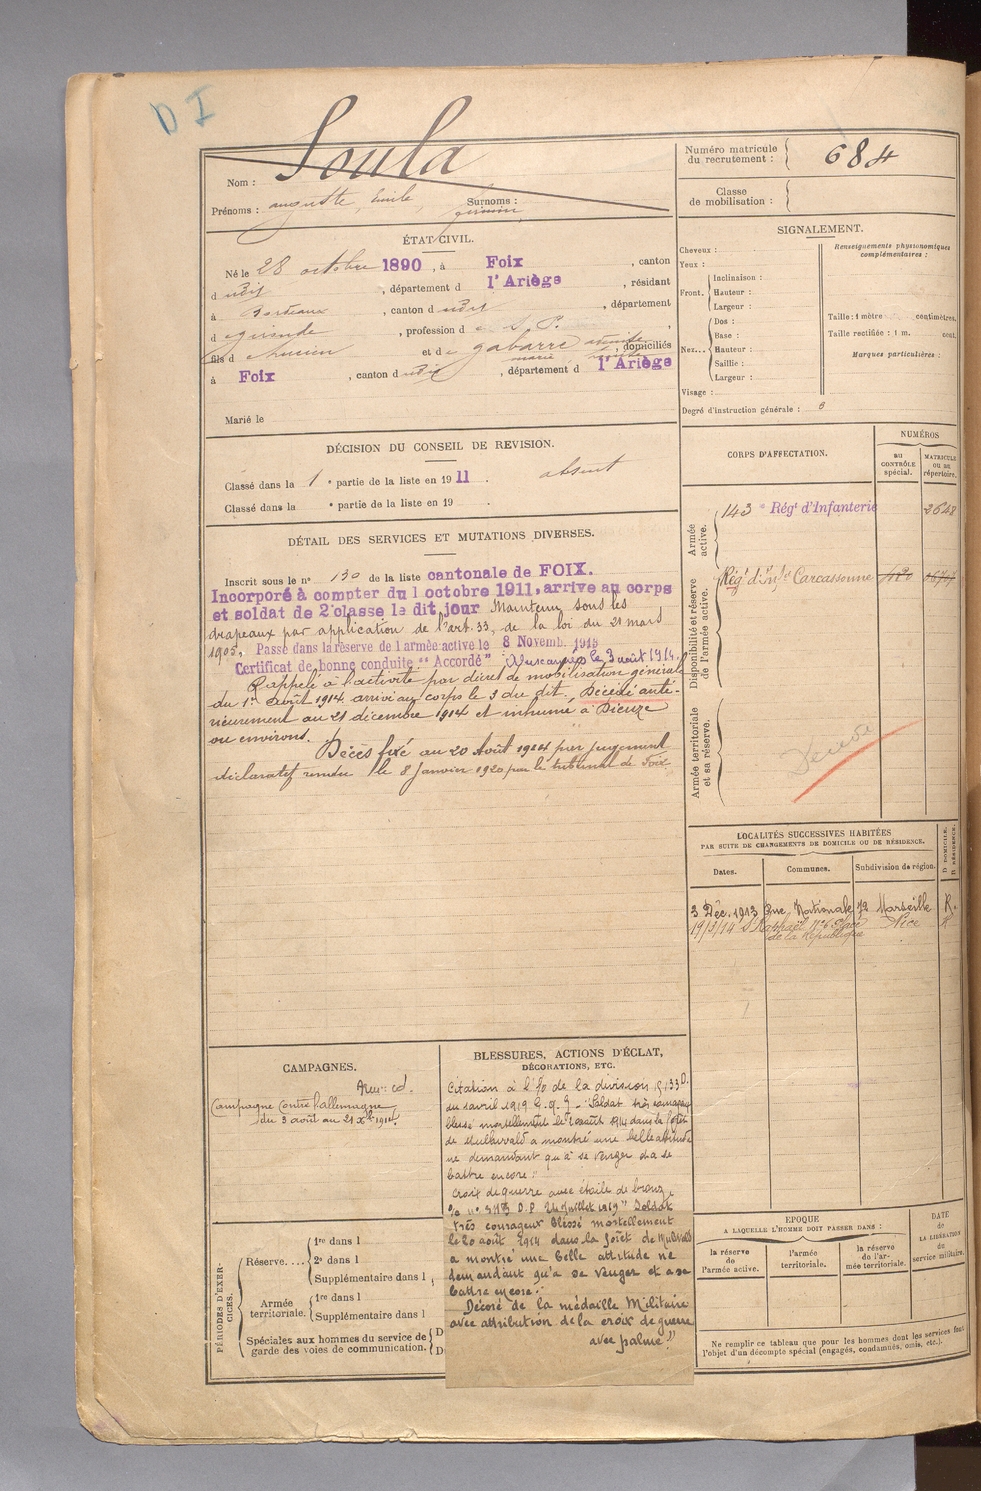 D I
Soula
Nom :
Prénoms : auguste, Emile, Surnoms :
Numéro matricule
du recrutement : 684
Classe
de mobilisation :
ÉTAT CIVIL.
Né le 28 octobre 1890, à Foix, canton
d udit, département d l'Ariège, résidant
à Bordeaux, canton d udit, département
d Gironde, profession d S. P.,
fils d Lucien et de gabarre marie, domiciliés
à Foix, canton d udit, département d l'Ariège
Marié le
SIGNALEMENT.
Cheveux :
Yeux :
Front.
Inclinaison :
Hauteur :
Largeur :
Nez...
Dos :
Base :
Hauteur :
Saillie :
Largeur :
Visage :
Degré d'instruction générale :
Renseignements physionomiques
complémentaires :
Taille : 1 mètre centimètres.
Taille rectifiée : 1 m. cent.
Marques particulières :
DÉCISION DU CONSEIL DE REVISION.
Classé dans la 1e partie de la liste en 1911. absent
Classé dans la e partie de la liste en 19 .
DÉTAIL DES SERVICES ET MUTATIONS DIVERSES.
Inscrit sous le n° 130 de la liste cantonale de FOIX.
Incorporé à compter du 1 octobre 1911, arrive au corps
et soldat de 2e classe le dit jour Maintenu sous les
drapeaux par application de l'art. 33, de la loi du 21 mars
1905. Passé dans la réserve de l'armée active le 8 Novemb. 1913
Certificat de bonne conduite "Accordé" le 3 août 1914.
Rappelé à l'activité par décret de mobilisation générale
du 1er Août 1914 arrivé au corps le 3 du dit. Décédé anté-
rieurement au 21 décembre 1914 et inhumé à Dieuze
ou environs.
Décès fixé au 20 Août 1914 par jugement
déclaratif rendu le 8 Janvier 1920 par le tribunal de Foix
CORPS D'AFFECTATION.
NUMÉROS
au
CONTRÔLE
spécial.
MATRICULE
ou au
répertoire.
Armée
active.
143e Régt d'Infanterie 2648
Disponibilité et réserve
de l'armée active.
Régt d'Inftie Carcassonne
Armée territoriale
et sa réserve.
LOCALITÉS SUCCESSIVES HABITÉES
PAR SUITE DE CHANGEMENTS DE DOMICILE OU DE RÉSIDENCE.
Dates.
Communes.
Subdivision de région.
D. DOMICILE.
R. RÉSIDENCE.
3 Déc. 1913 Rue Nationale 72 Marseille R.
19/3/14 St Raphaël N°6 Place Nice R
de la République
CAMPAGNES.
Campagne contre l'allemagne
du 3 août au 21 Xbre 1914.
BLESSURES, ACTIONS D'ÉCLAT,
DÉCORATIONS, ETC.
Citation à l'O de la division
avril 1919 "Soldat très courageux
blessé mortellement le 20 août 1914 dans la forêt
de Mulwald a montré une belle attitude
ne demandant qu'à se venger et à se
battre encore."
Croix de guerre avec étoile de bronze
Juillet 1919 "Soldat
très courageux blessé mortellement
le 20 août 1914 dans la forêt de Mulwald
a montré une belle attitude ne
demandant qu'à se venger et a se
battre encore."
Décoré de la médaille Militaire
avec attribution de la croix de guerre
avec palme"
PÉRIODES D'EXER-
CICES.
Réserve....
1re dans l
2e dans l
Supplémentaire dans l
Armée
territoriale.
1re dans l
Supplémentaire dans l
Spéciales aux hommes du service de
garde des voies de communication.
EPOQUE
A LAQUELLE L'HOMME DOIT PASSER DANS :
la réserve
de
l'armée active.
l'armée
territoriale.
la réserve
de l'ar-
mée territoriale.
DATE
de
LA LIBÉRATION
du
service militaire.
Ne remplir ce tableau que pour les hommes dont les services font
l'objet d'un décompte spécial (engagés, condamnés, omis, etc.).